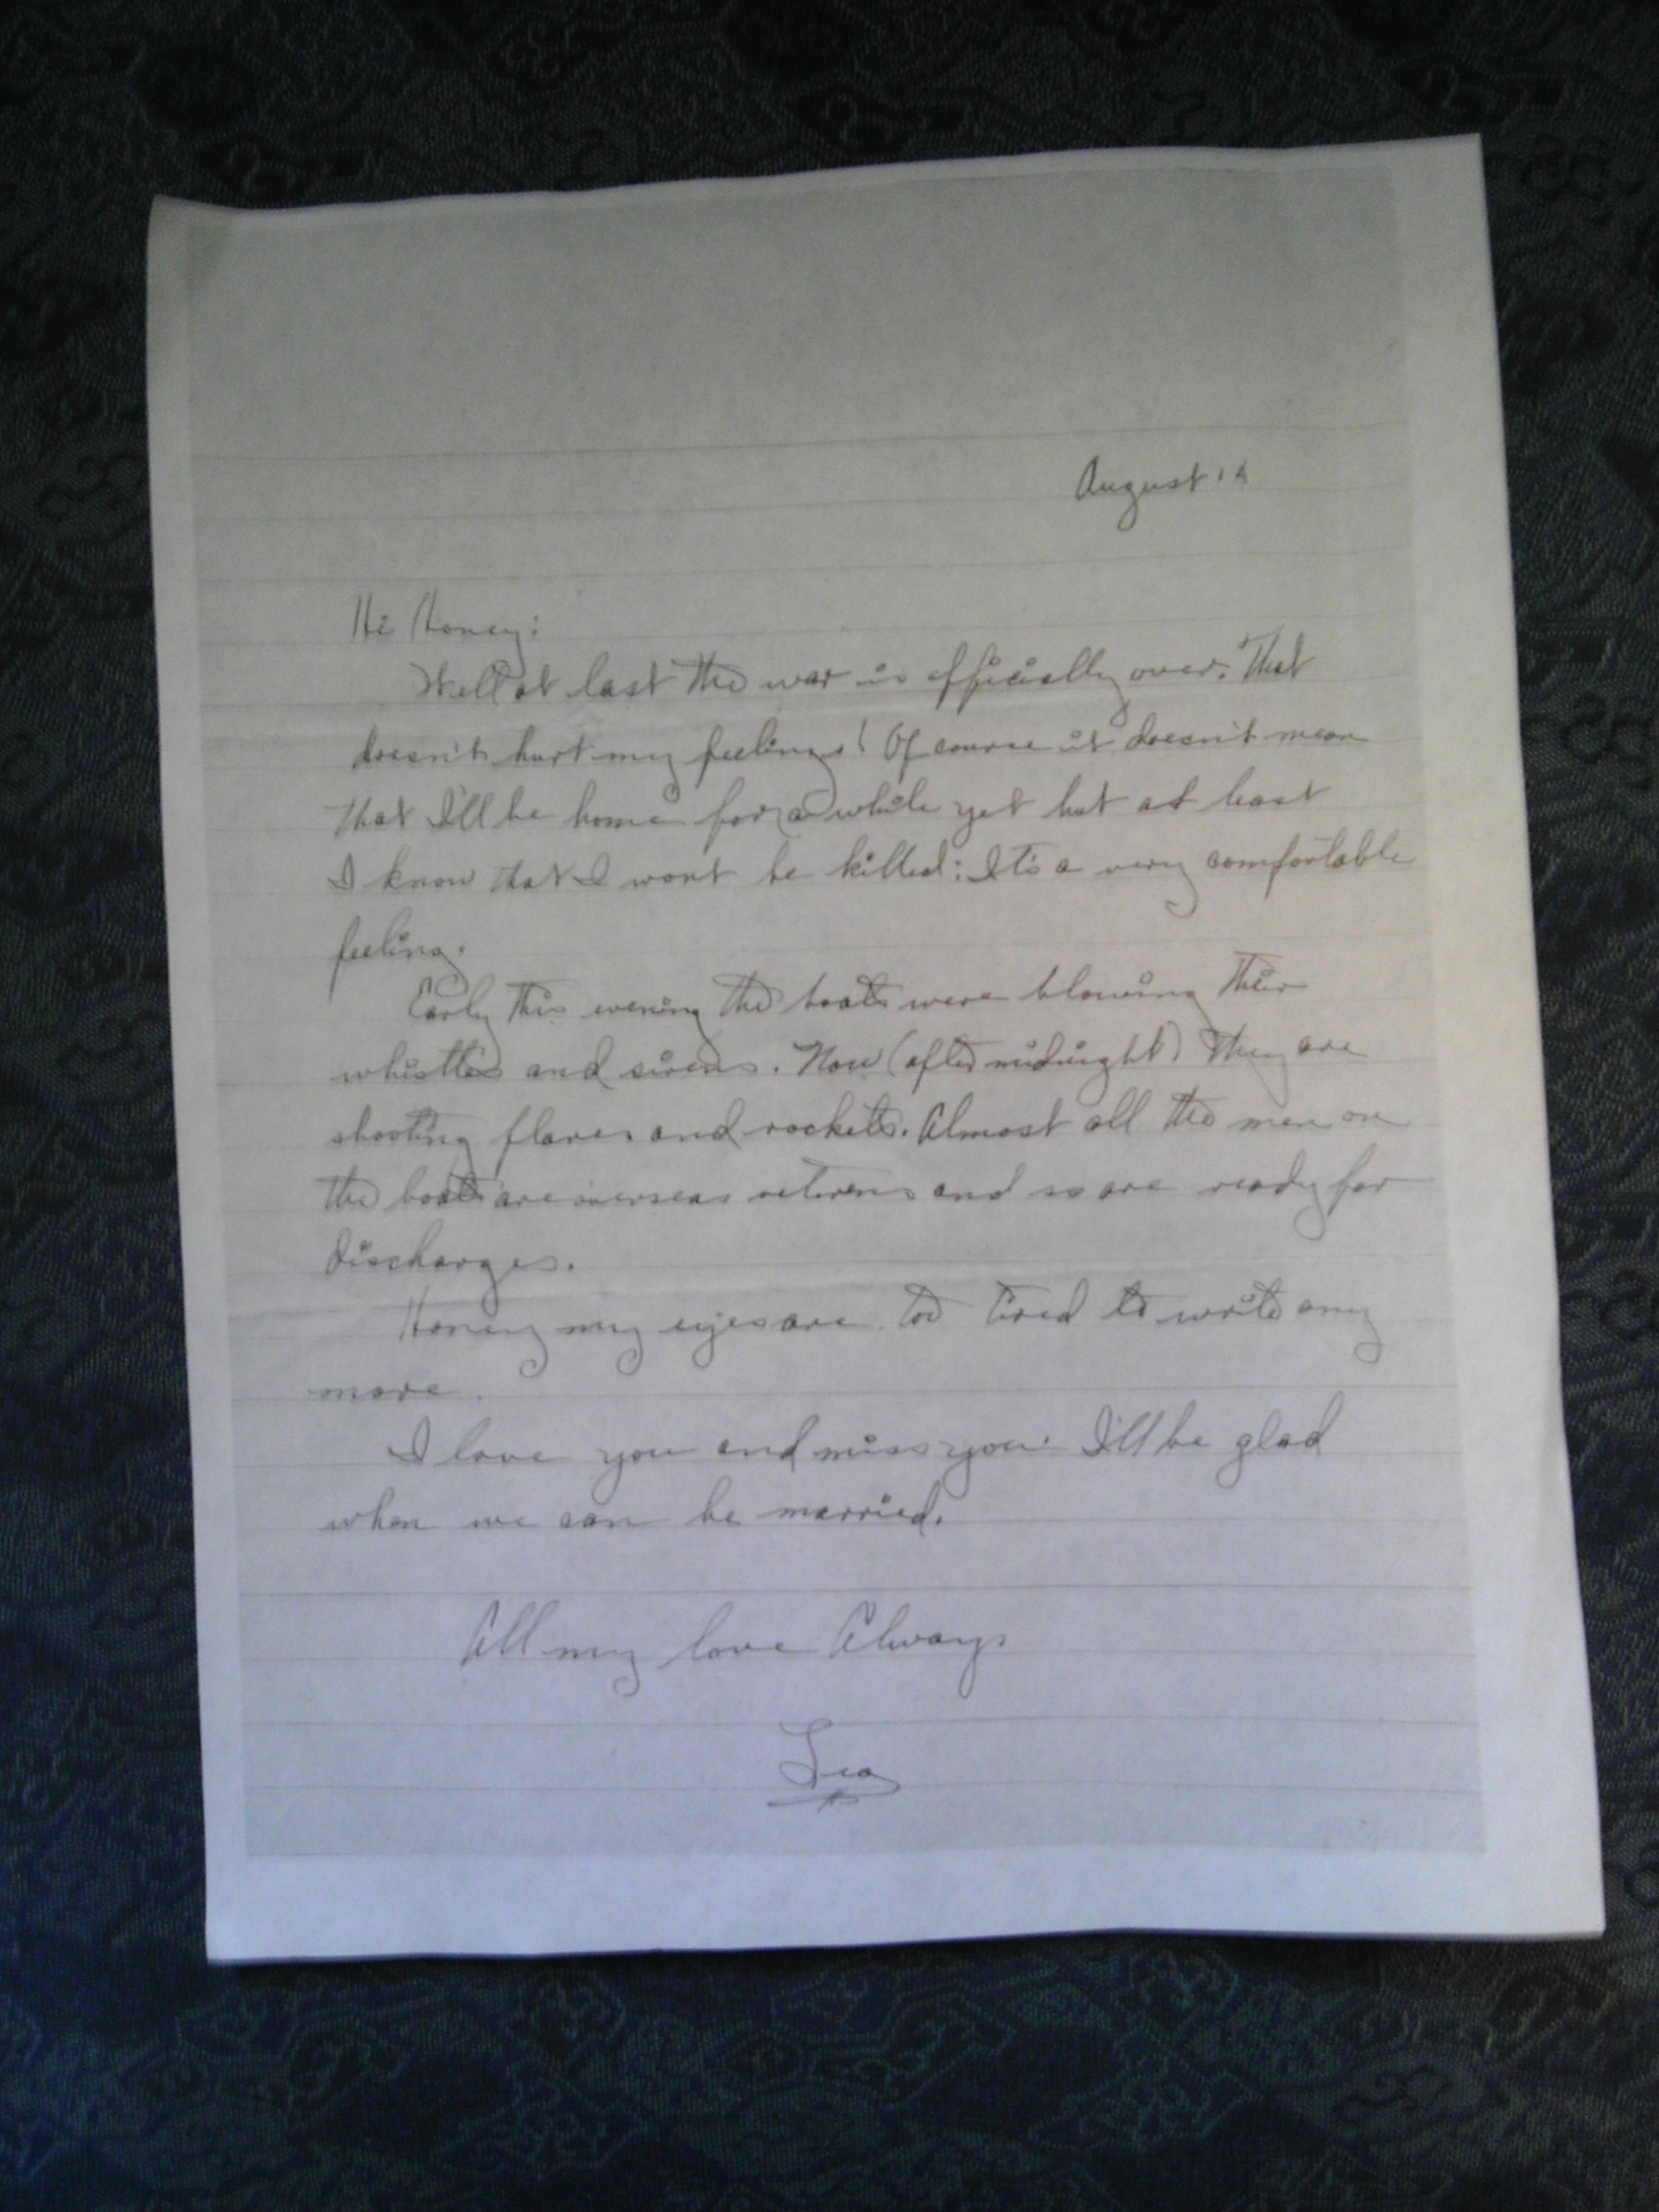 August 14
Hi Honey:
Well at last the war is officially over. That
doesn't hurt my feelings! Of course it doesn't mean
that I'll be home for a while yet but at least
I know that I wont be killed: It's a very comfortable
feeling.
Early this evening the boats were blowing their
whistles and sirens. Now (after midnight) they are
shooting flares and rockets. Almost all the men on
the boats are overseas veterens and so are ready for
discharges.
Honey my eyes are too tired to write any
more.
I love you and miss you. I'll be glad
when we can be married.
All my love Always
Leo